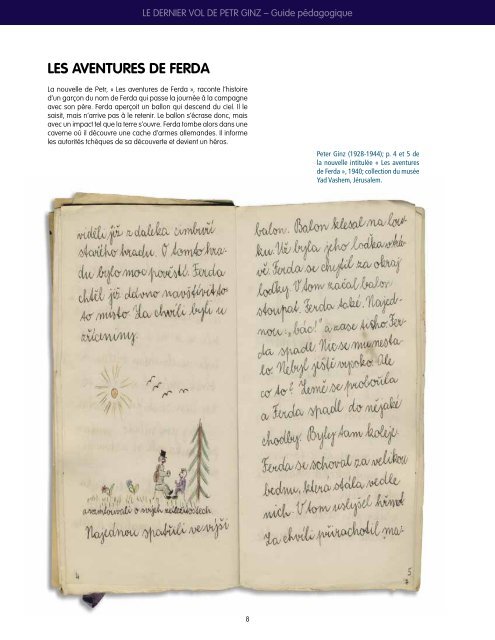 LE DERNIER VOL DE PETR GINZ – Guide pédagogique
LES AVENTURES DE FERDA
La nouvelle de Petr, « Les aventures de Ferda », raconte l'histoire
d'un garçon du nom de Ferda qui passe la journée à la campagne
avec son père. Ferda aperçoit un ballon qui descend du ciel. Il le
saisit, mais n'arrive pas à le retenir. Le ballon s'écrase donc, mais
avec un impact tel que la terre s'ouvre. Ferda tombe alors dans une
caverne où il découvre une cache d'armes allemandes. Il informe
les autorités tchèques de sa découverte et devient un héros.
Peter Ginz (1928-1944); p. 4 et 5 de
la nouvelle intitulée « Les aventures
de Ferda », 1940; collection du musée
Yad Vashem, Jérusalem.
viděli již z daleka cimbuří
starého hradu. O tomto hra-
du bylo moc pověstí. Ferda
chtěl již dávno navštívit to-
to místo. Za chvíli byli u
zříceniny.
a rozmlouvali o svých záležitostech.
Najednou spatřili ve výši
4
balon. Balon klesal na lou-
ku. Už byla jeho loďka
vě Ferda se chytil za okraj
loďky. V tom začal balon
stoupat. Ferda také. Najed-
nou: „bác!" a zase ticho. Fer-
da spadl. Nic se mu nesta-
lo. Nebyl ještě vysoko. Ale
co to? Země se probořila
a Ferda spadl do nějaké
chodby. Byly tam koleje.
Ferda se schoval za velikou
bednu, která stála vedle
nich. V tom uslyšel hřmot
Za chvíli přirachotil ma-
5
8